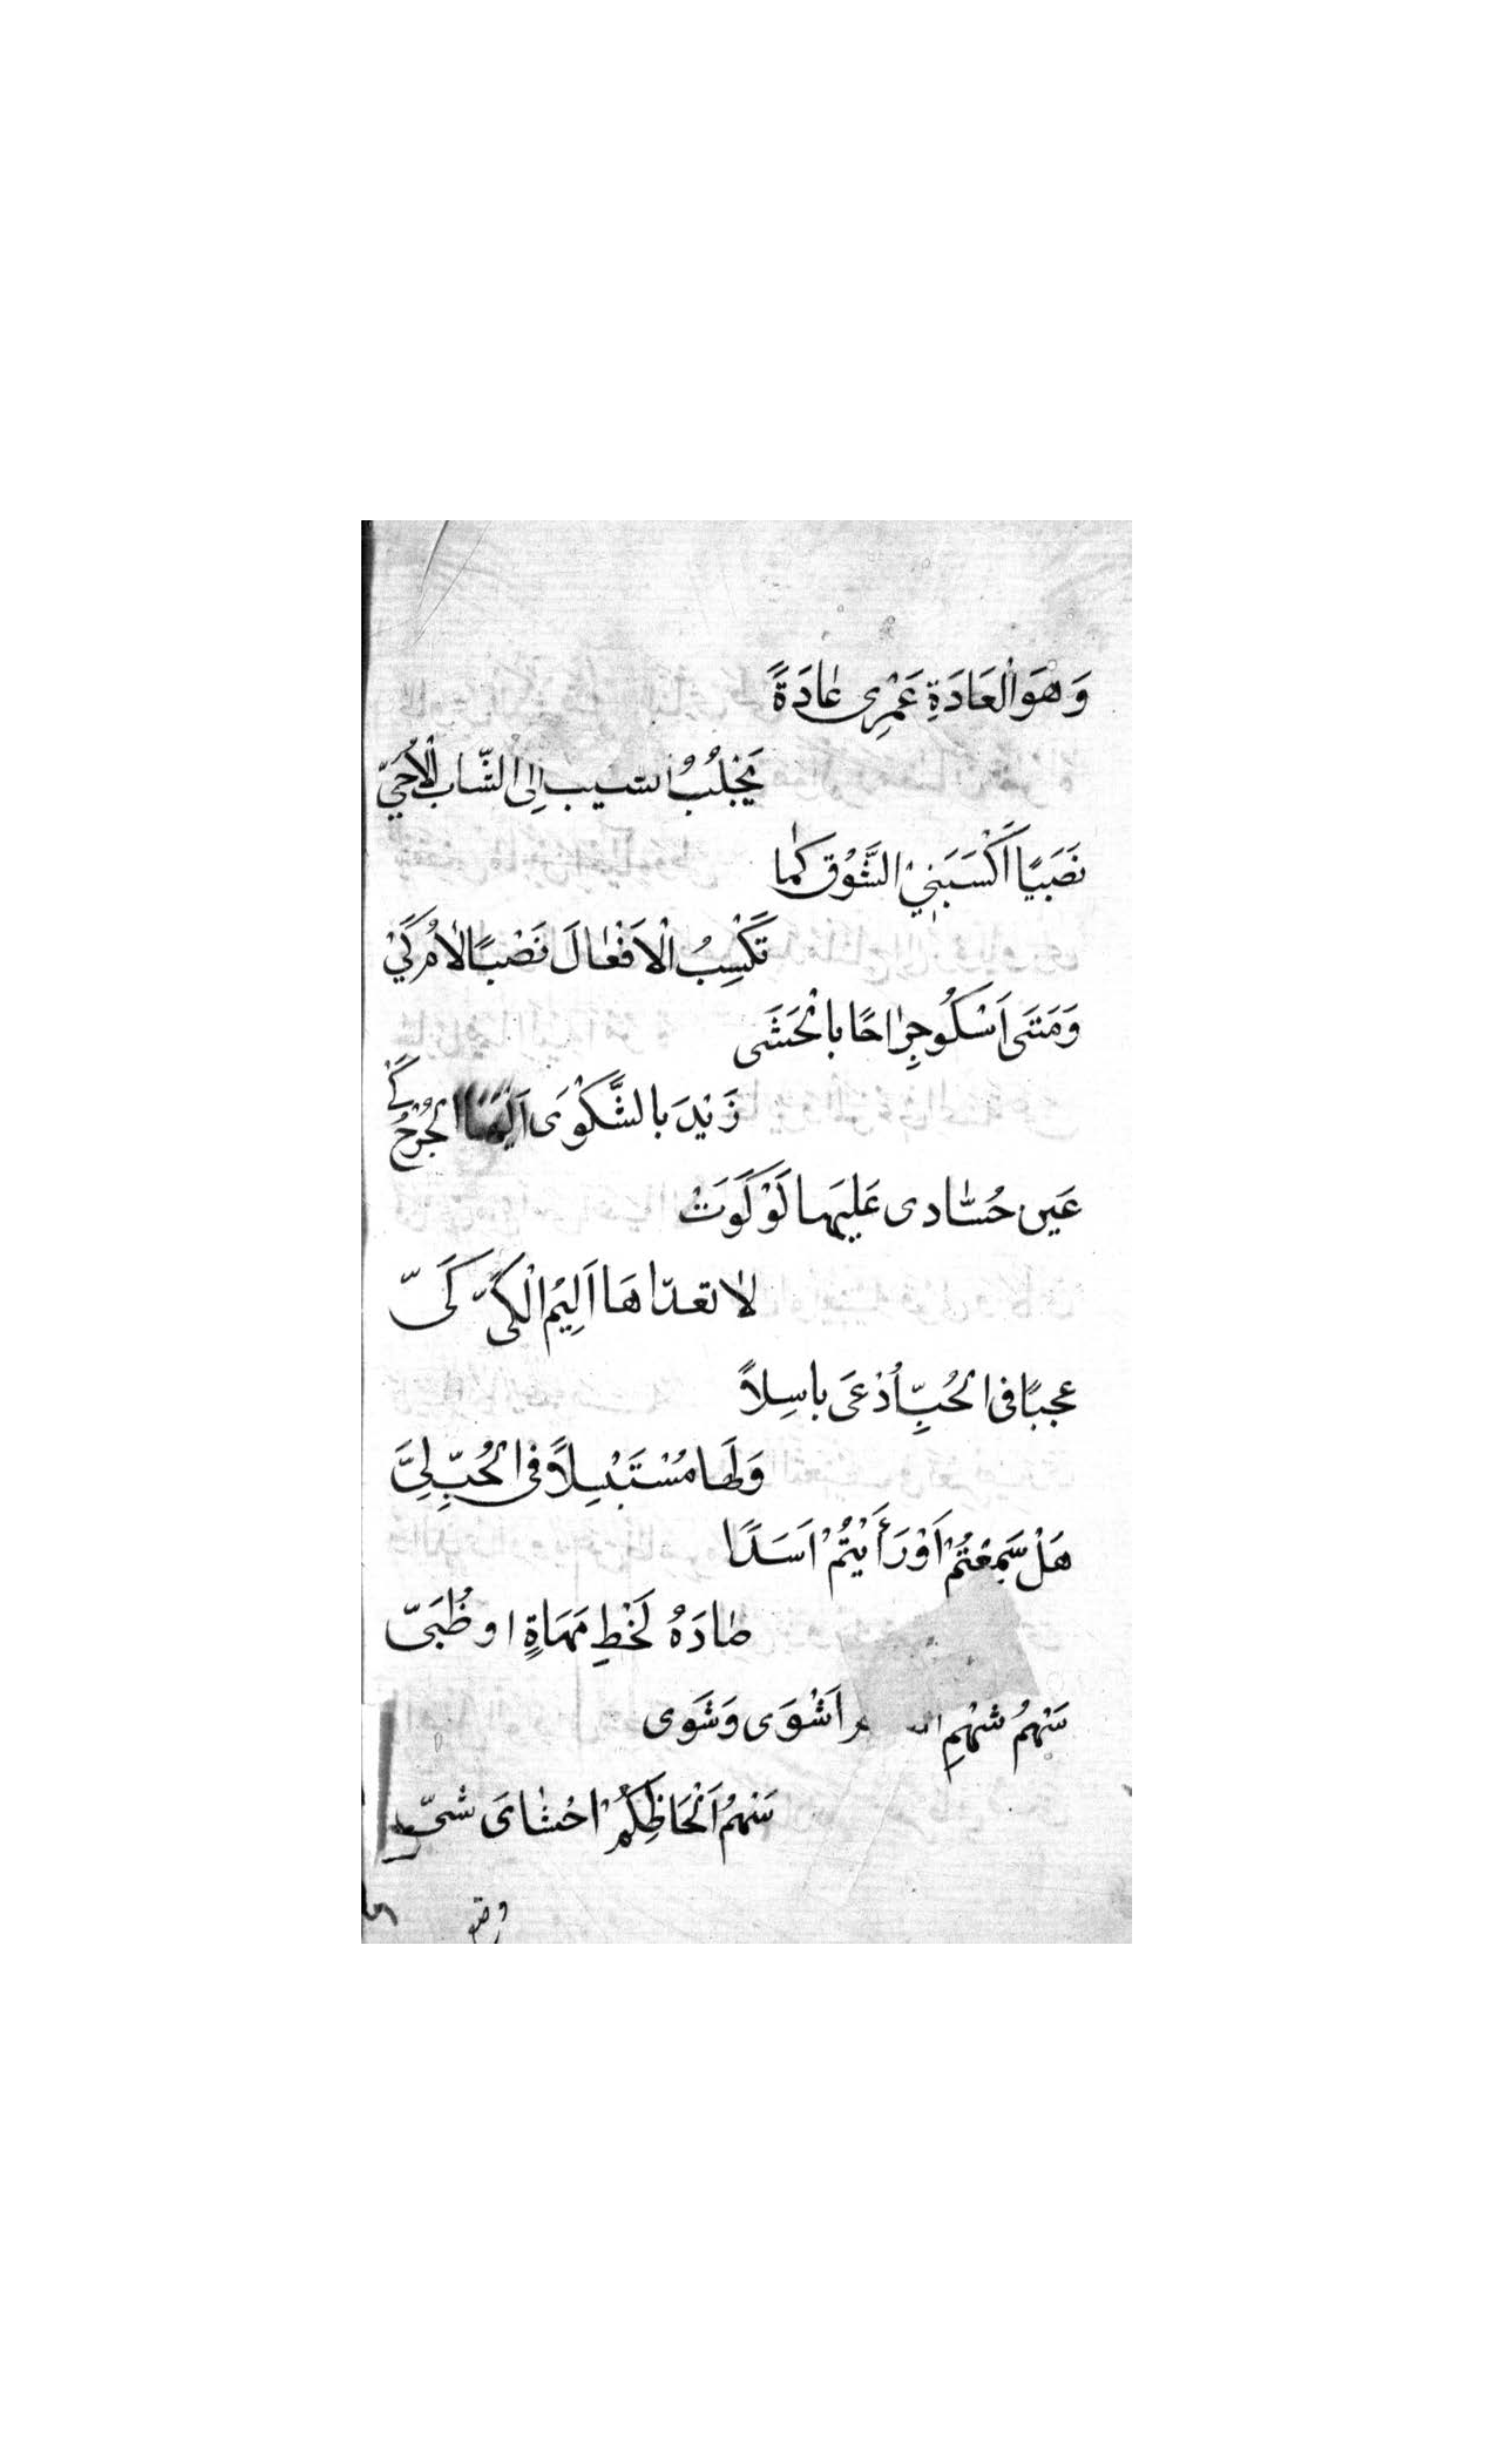 وَهَوَالْعَادَةِ عَمْرِى عٰادَةً
يَجْلُبُ الشيب اِلىَ الشّاب الْاُحَيّ
نَصَبًا اَكْسَبَنِيْ الشَّوْق كَمٰا
تَكْسِبُ الْاَفْعٰالَ نَصْبًا لٰامُ كَيْ
وَمَتَى اَشكُوجِرٰاحًا بالْحَشَى
زَيْدَ بالشَّكْوَى اَلجُرْحُ كَيْ
عَين حُسّٰادى عَلَيهَا لَوْ كَوَتْ
لاٰ تعدّاهَا اَلِيْمُ الْكَىّ كَىّ
عجبًا فى الحُبِّ اُدْعَى باسِلاً
وَلَهَا مُسْتَبْسِلاً فى الحُبِّ لِىَّ
هَلْ سَمِعْتُمْ اَوْ رَأَيْتُمْ اَسَدًا
صٰادَهُ لَحْظِ مَهَاةٍ او ظُبَىّ
سَهْمُ شَهْمِ اَشْوَى وَشَوَى
سَهْمُ اَلْحَاظِكُمْ احْشٰاىَ شىّ